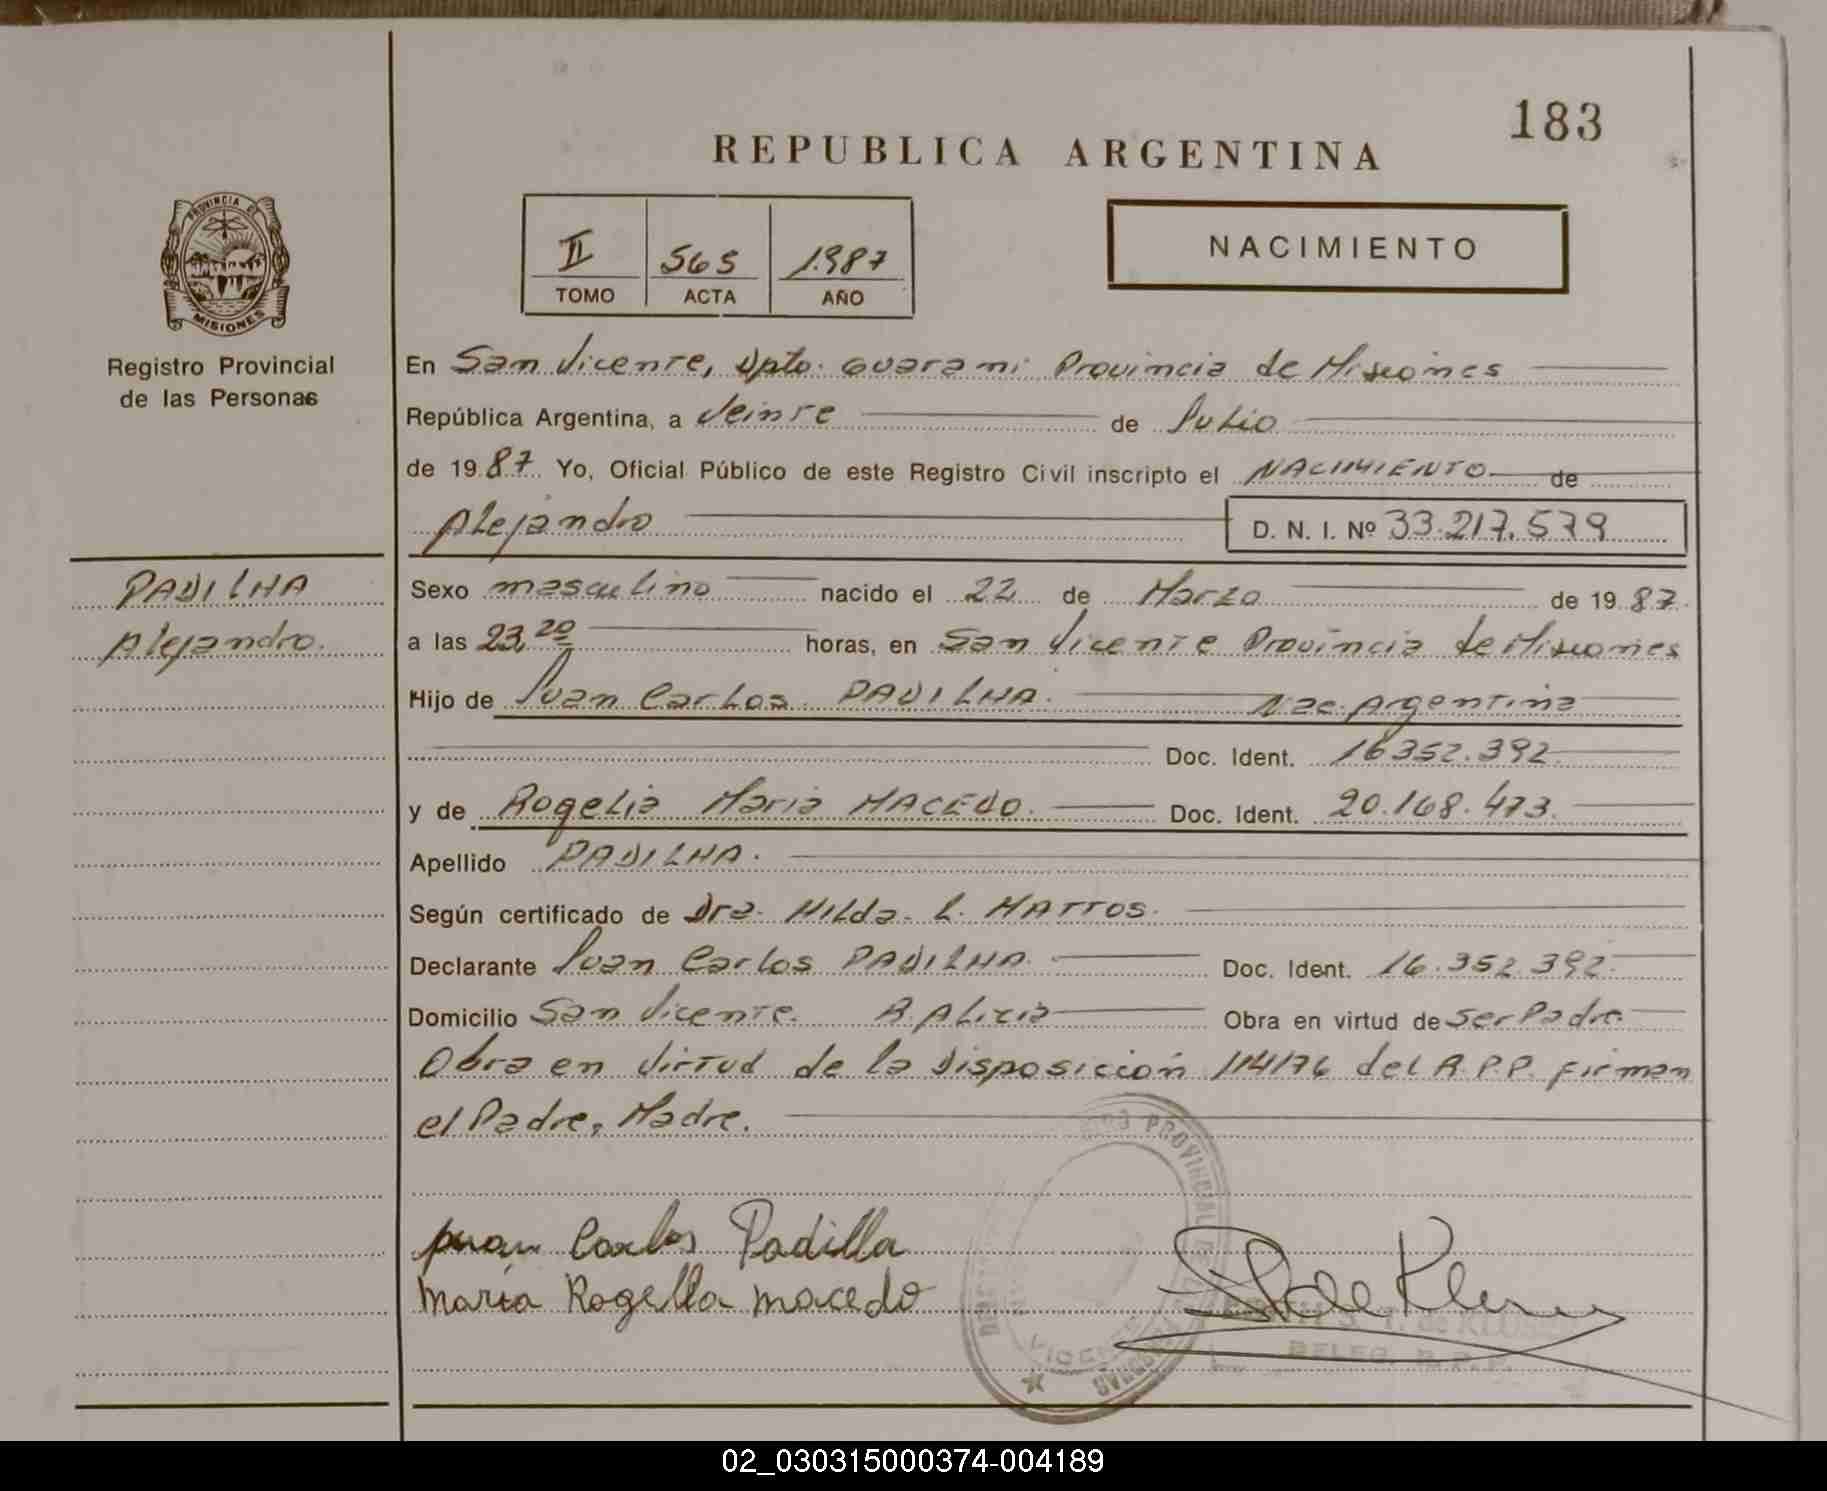 183
REPUBLICA ARGENTINA
PROVINCIA DE
MISIONES
Registro Provincial
de las Personas
II 565 1987
TOMO ACTA AÑO
NACIMIENTO
En San Vicente, Dpto. Guarani Provincia de Misiones
República Argentina, a Veinte de Julio
de 1987 Yo, Oficial Público de este Registro Civil inscripto el NACIMIENTO de
Alejandro D. N. I. Nº 33.217.579
PADILHA
Alejandro.
Sexo masculino nacido el 22 de Marzo de 1987
a las 23,20 horas, en San Vicente Provincia de Misiones
Hijo de Juan Carlos PADILHA. Nac. Argentina
Doc. Ident. 16352.392
y de Rogelia Maria MACEDO. Doc. Ident. 20.168.473.
Apellido PADILHA.
Según certificado de Dra. Hilda. L. MATTOS.
Declarante Juan Carlos PADILHA. Doc. Ident. 16.352.392.
Domicilio San Vicente. B. Alicia Obra en virtud de ser Padre.
Obra en virtud de la Disposición 114/76 del R.P.P. firman
el Padre, Madre.
Juan Carlos Padilla
María Rogella macedo
PROVINCIAL
DELEG. R.P.P.
02_030315000374-004189